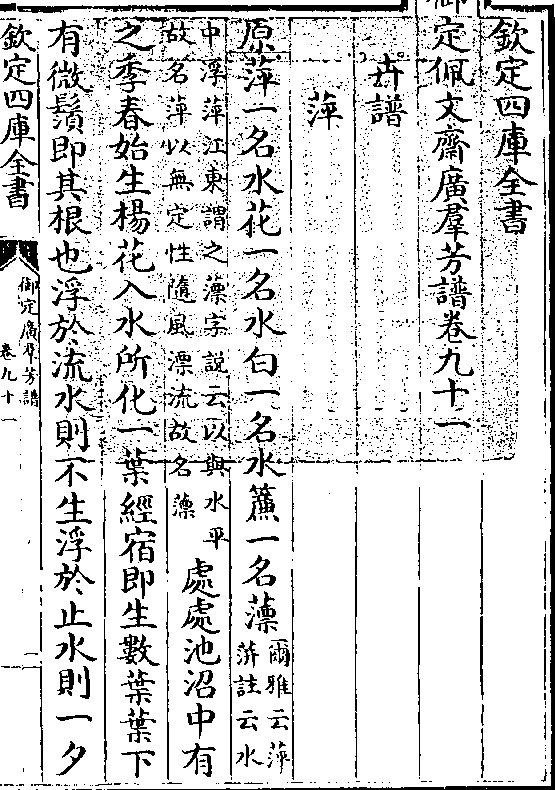 欽定四庫全書
御定佩文齋廣羣芳譜卷九十一
卉譜
萍
原萍一名水花一名水白一名水簾一名薸爾雅云萍
蓱註云水
中浮萍江東謂之薸字說云以與水平
故名萍以無定性隨風漂流故名薸
處處池沼中有
之季春始生楊花入水所化一葉經宿即生數葉葉下
有微鬚即其根也浮於流水則不生浮於止水則一夕
欽定四庫全書
御定廣羣芳譜
卷九十一
一